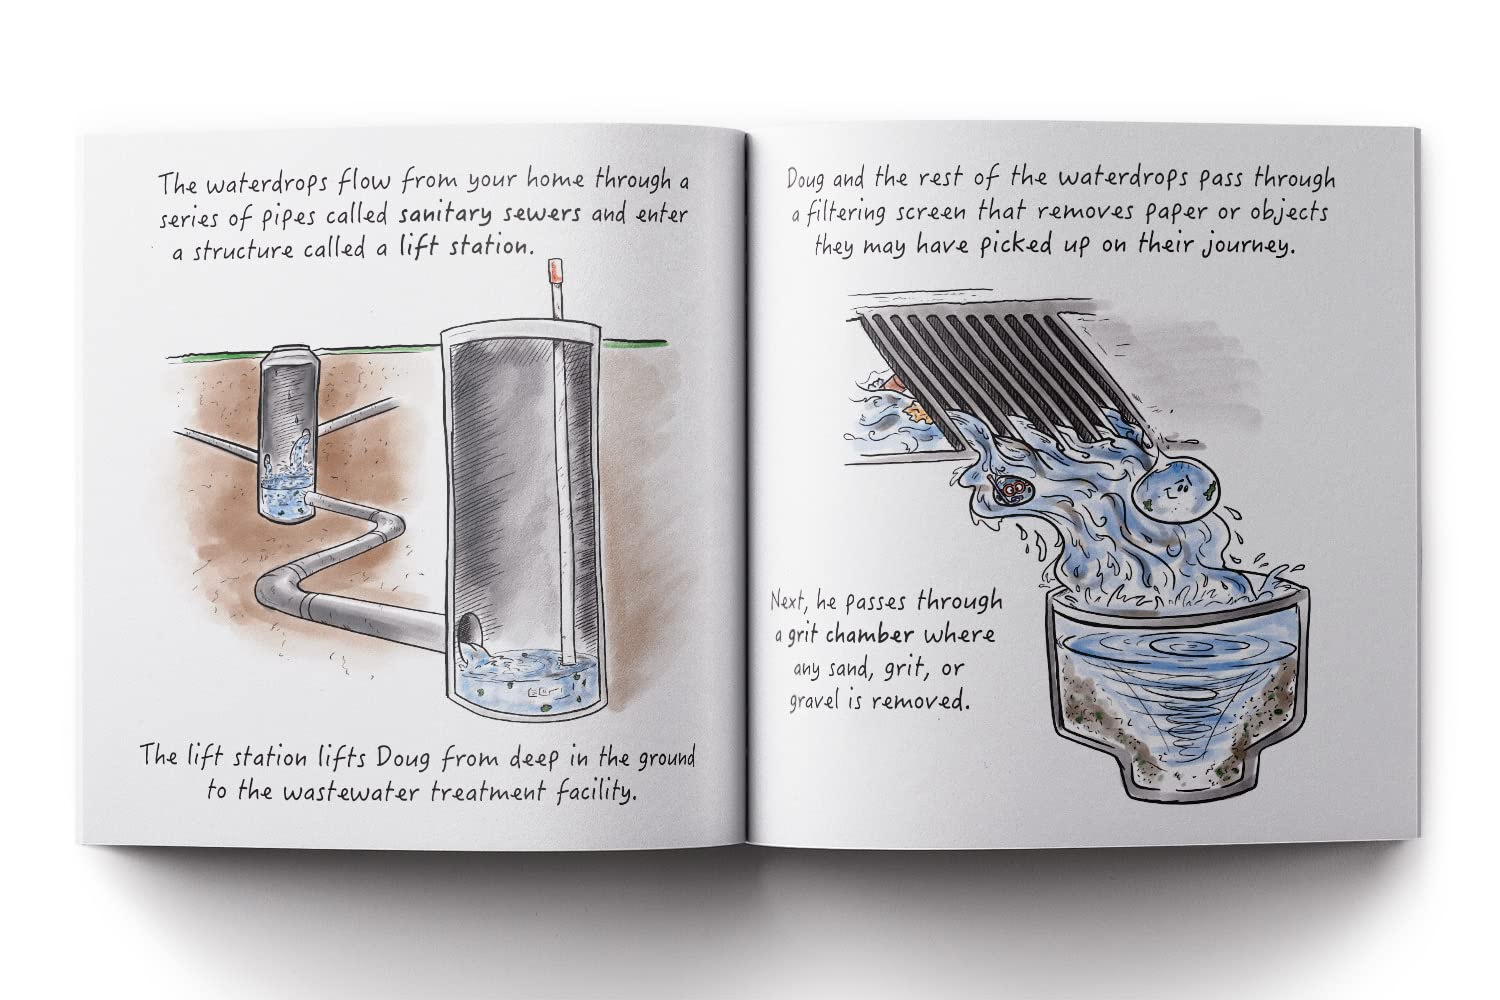 The waterdrops flow from your home through a
series of pipes called sanitary sewers and enter
a structure called a lift station.
The lift station lifts Doug from deep in the ground
to the wastewater treatment facility.
Doug and the rest of the waterdrops pass through
a filtering screen that removes paper or objects
they may have picked up on their journey.
Next, he passes through
a grit chamber where
any sand, grit, or
gravel is removed.